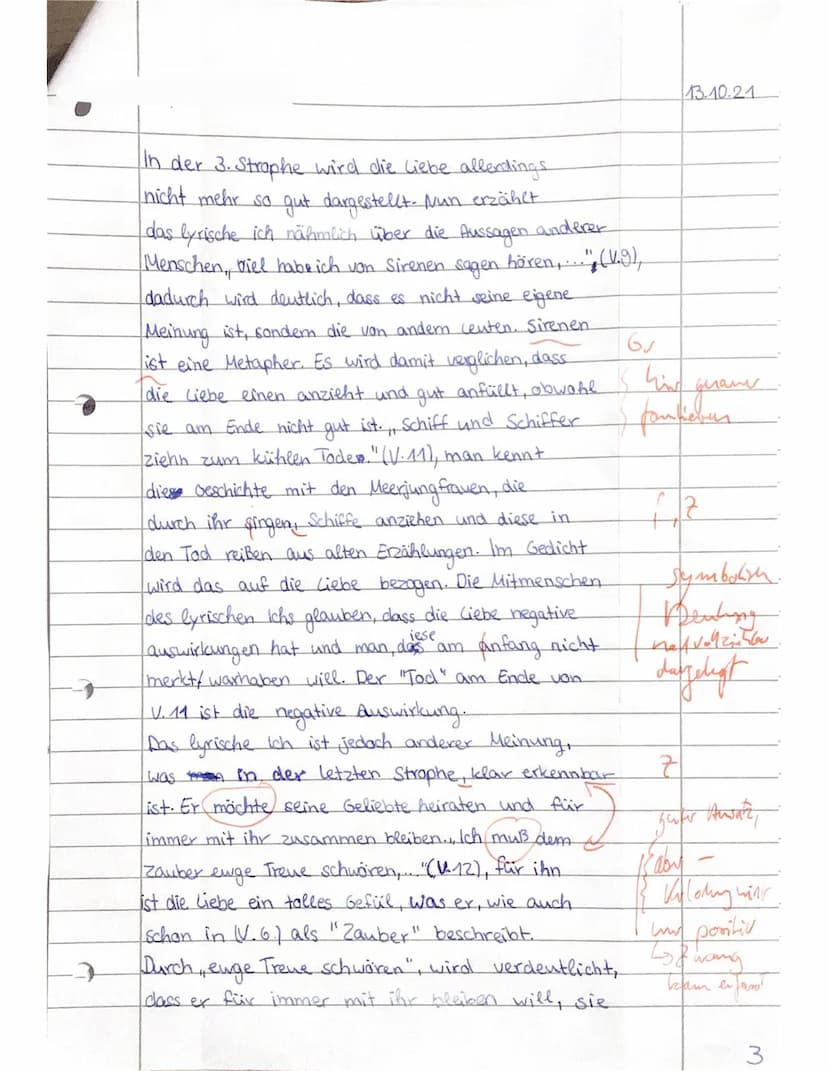 13.10.21
In der 3. Strophe wird die Liebe allerdings
nicht mehr so gut dargestellt. Nun erzählt
das lyrische ich nähmlich über die Aussagen anderer
Menschen „Viel habe ich von Sirenen sagen hören,...", (V.9),
dadurch wird deutlich, dass es nicht seine eigene
Meinung ist, sondern die von andern Leuten. Sirenen
ist eine Metapher. Es wird damit verglichen, dass
Gr
die Liebe einen anzieht und gut anfüllt, obwohl
hier genauer
sie am Ende nicht gut ist. „Schiff und Schiffer
formulieren
ziehn zum kühlen Tode." (V.11), man kennt
diese Geschichte mit den Meerjungfrauen, die
durch ihr gingen, Schiffe anziehen und diese in
f, Z
den Tod reißen aus alten Erzählungen. Im Gedicht
wird das auf die Liebe bezogen. Die Mitmenschen
symbolisch
des lyrischen Ichs glauben, dass die Liebe negative
Deutung
auswirkungen hat und man, diese am Anfang nicht
nachvollziehbar
merkt/warhaben will. Der "Tod" am Ende von
dargelegt
V.11 ist die negative Auswirkung.
Das lyrische Ich ist jedoch anderer Meinung,
was in der letzten Strophe, klar erkennbar
Z
ist. Er möchte seine Geliebte heiraten und für
guter Ansatz,
immer mit ihr zusammen bleiben. „Ich muß dem
aber –
Zauber ewge Treue schwören,..."(V.12), für ihn
ist die Liebe ein tolles Gefül, was er, wie auch
schon in (V.6) als "Zauber" beschreibt.
nur positiv
Durch „ewge Treue schwören", wird verdeutlicht,
↳ Zwang
dass er für immer mit ihr bleiben will, sie
kaum erfasst
3